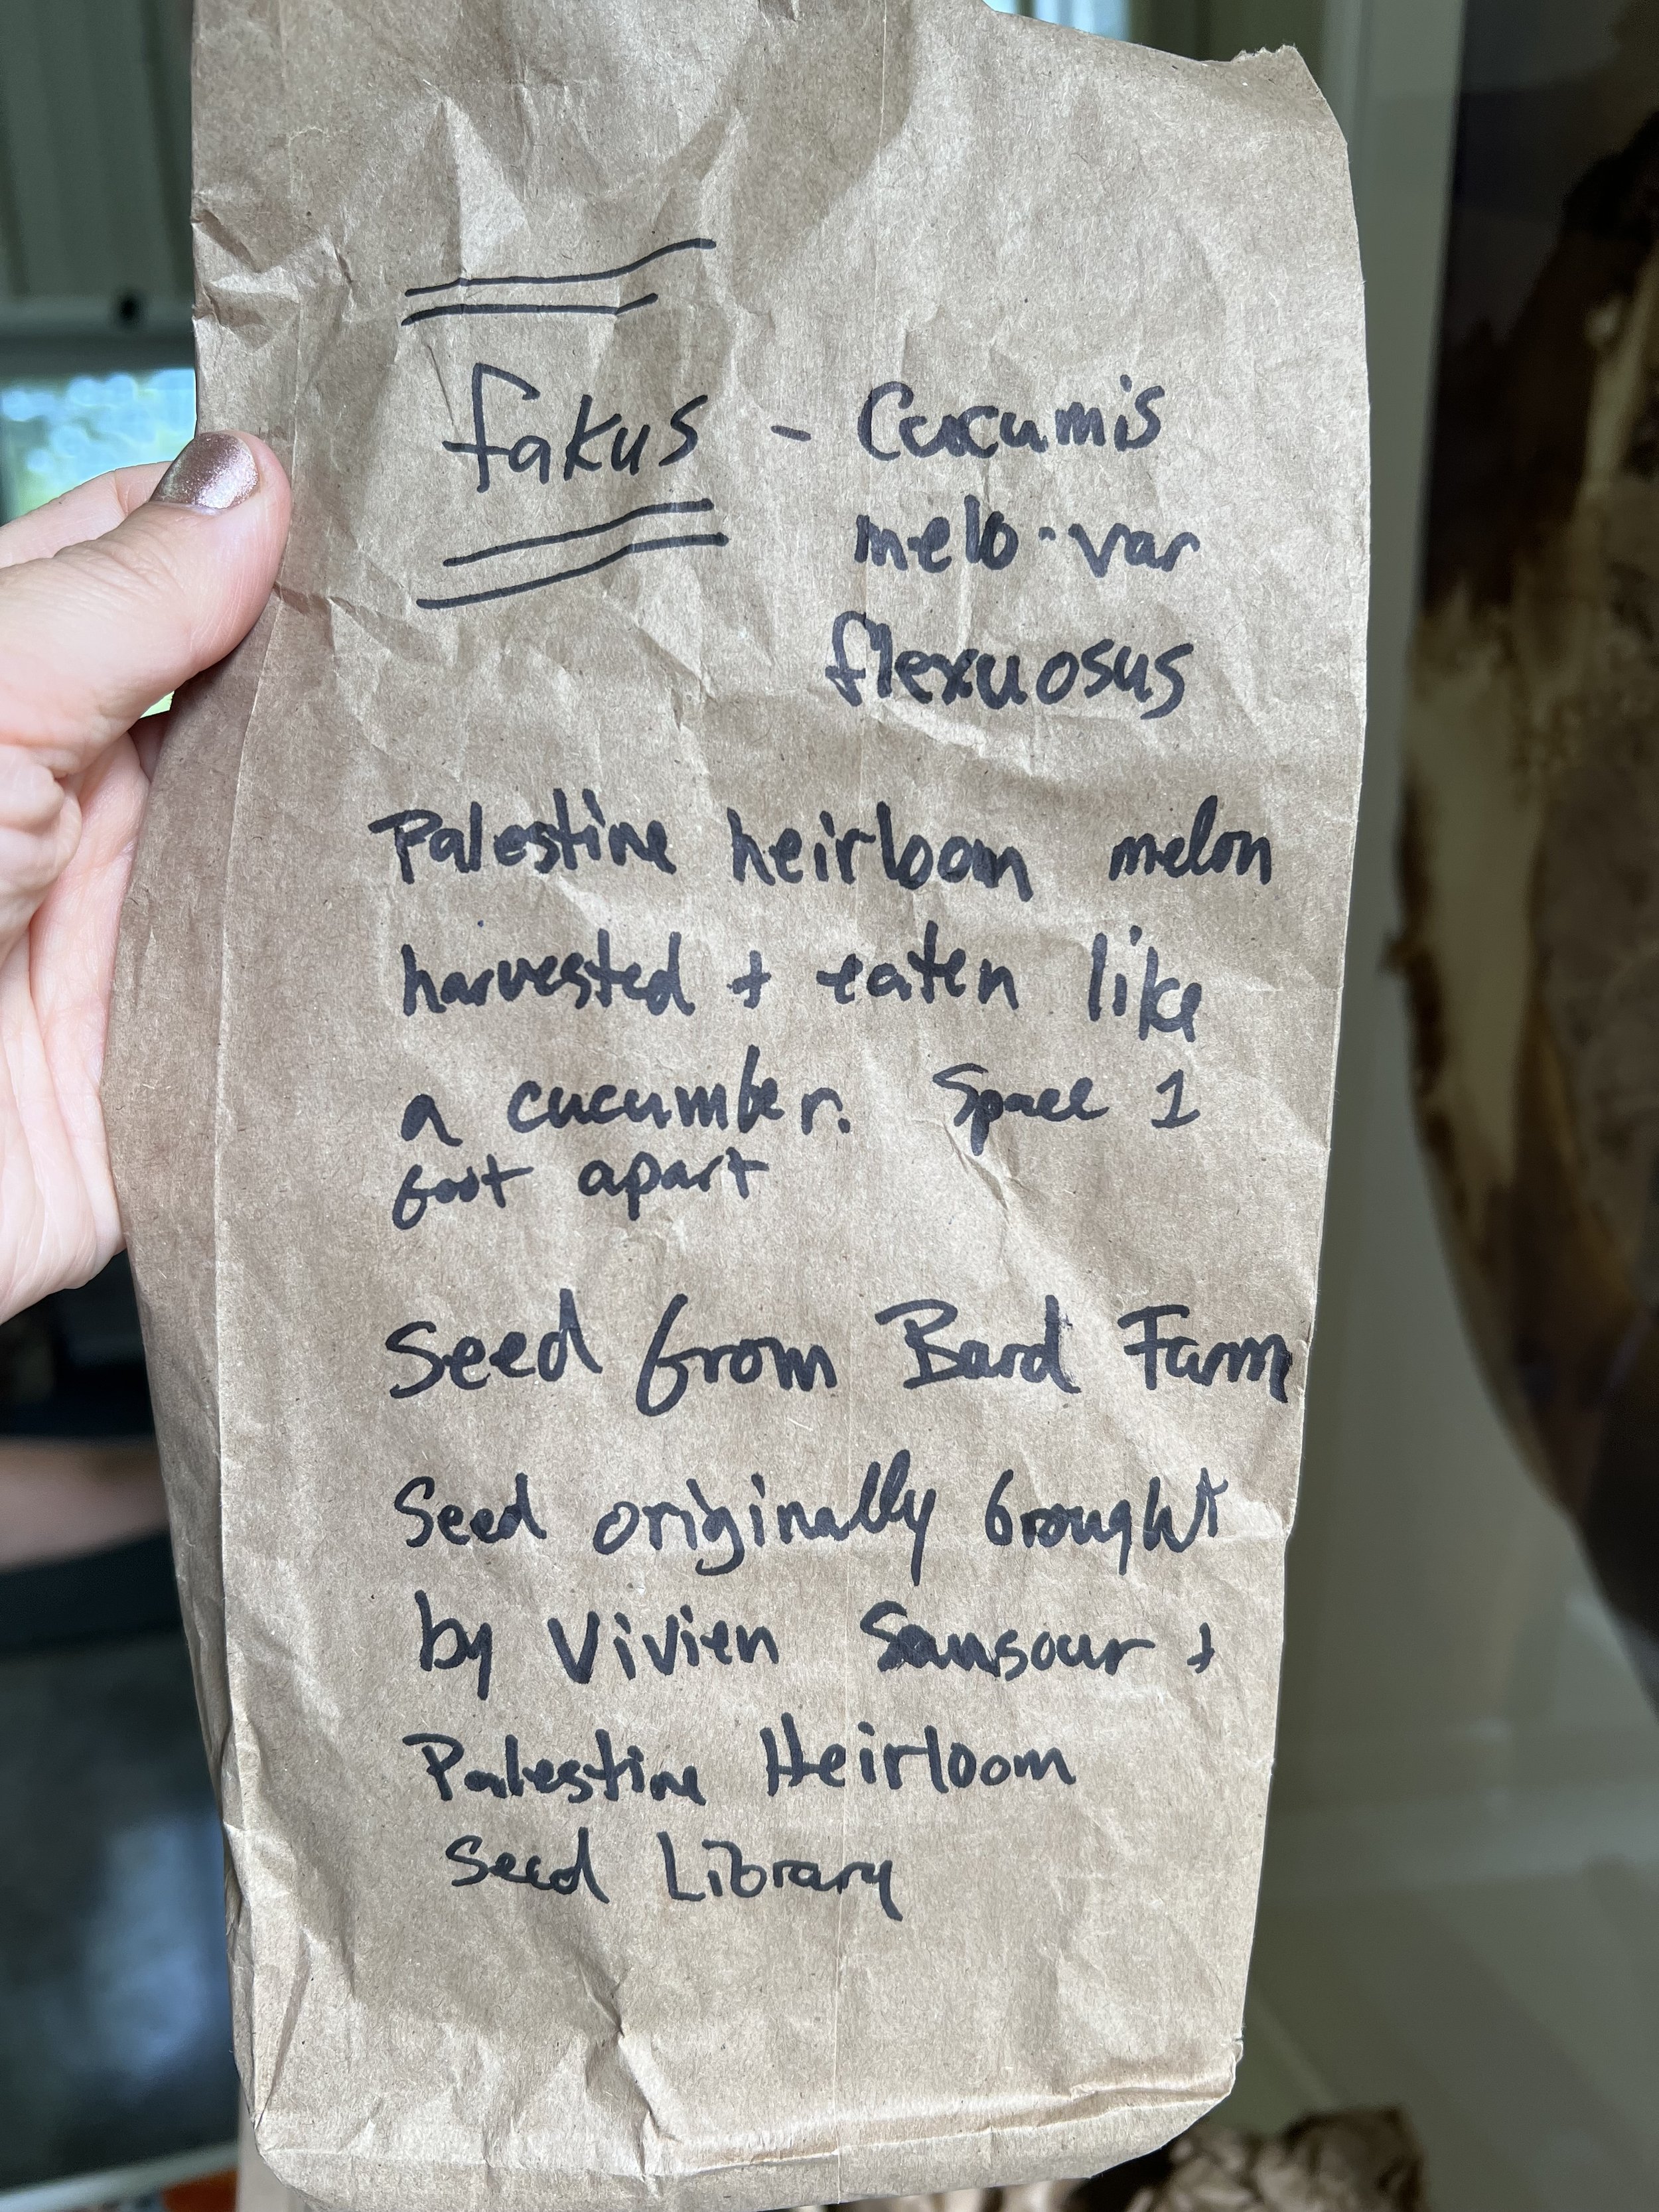 fakus - Cucumis
melo. var
flexuosus
Palestine heirloom melon
harvested + eaten like
a cucumber. Space 1
foot apart
Seed from Bard Farm
Seed originally brought
by Vivien Sansour +
Palestine Heirloom
Seed Library